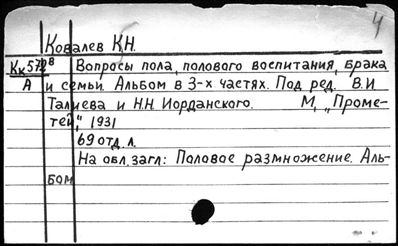 4
Ковалев К.Н.
Кк572в Вопросы пола, полового воспитания, брака
А и семьи. Альбом в 3-х частях. Под ред. В.И
Талиева и Н.Н. Иорданского. М, „Проме-
тей", 1931
69 отд. л.
На обл. загл: Половое размножение. Аль-
бом